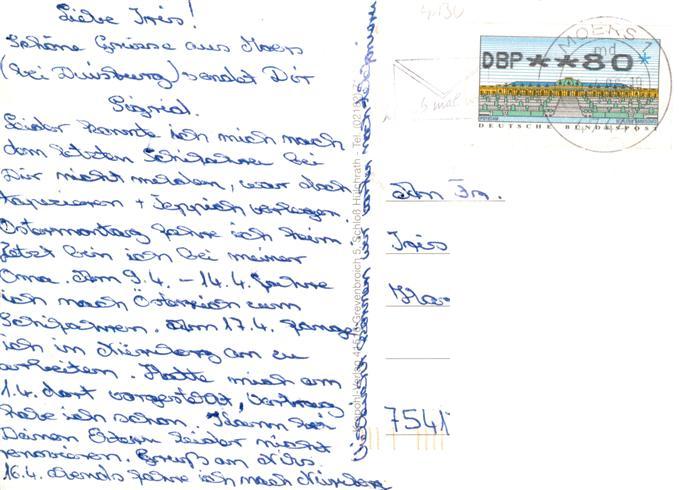 Liebe Iris!
Schöne Grüsse aus Moers
(bei Duisburg) sendet Dir
Sigrid.
Leider konnte ich mich nach
dem letzten Schifahren bei
Dir nicht melden, war doch
tapezieren + Teppich verlegen.
Ostermontag fahre ich heim.
Jetzt bin ich bei meiner
Oma. Am 9.4. - 14.4. fahre
ich nach Österreich zum
Schifahren. Am 17.4. fange
ich in Nürnberg an zu
arbeiten. Hatte mich am
1.4. dort vorgestellt, Vertrag
habe ich schon. Kann bei
Deinen Eltern leider nicht
renovieren. Gruß an Nils.
16.4. abends fahre ich nach Nürnberg
Vielleicht können wir vorher noch
Verlag 41516 Grevenbroich 5, Schloß Hülchrath - Tel.
MOERS 1
md
DBP**80*
DEUTSCHE BUNDESPOST
An Fr.
Iris
7541